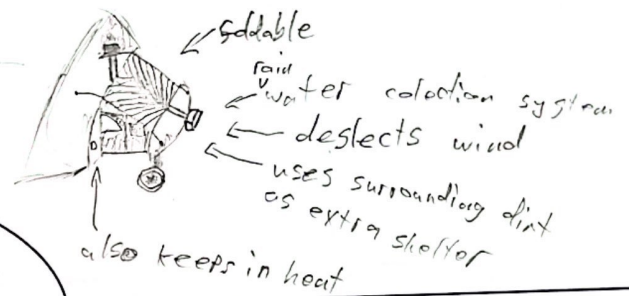 foldable
rain
water colection system
deflects wind
uses surrounding dirt
as extra shelter
also keeps in heat